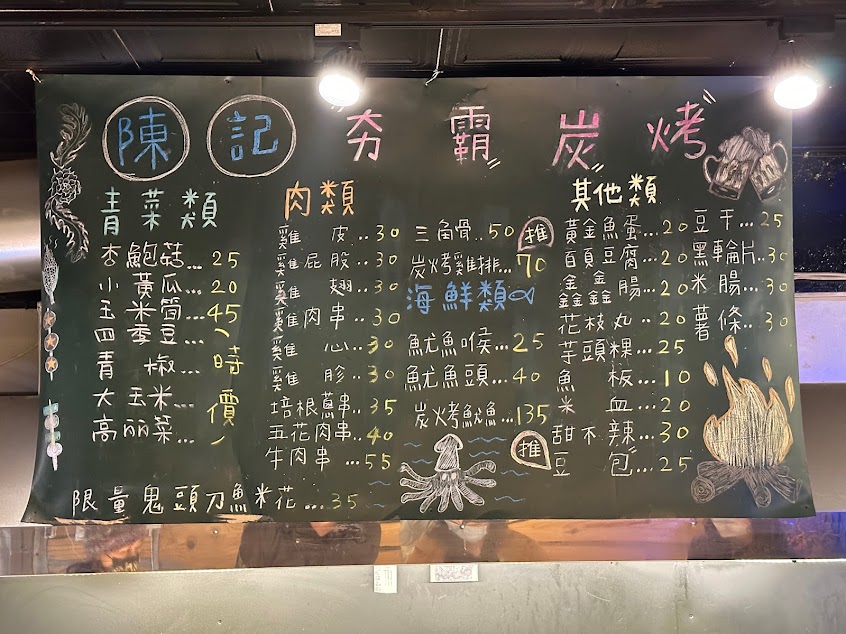 陳記 夯霸炭烤
青菜類
杏鮑菇...25
小黃瓜...20
玉米筍...45
四季豆...
青椒...
大玉米...
高麗菜...
(時價)
限量鬼頭刀魚米花...35
肉類
雞皮..30
雞屁股..30
雞翅..30
雞肉串..30
雞心..30
雞胗..30
培根蔥串..35
五花肉串..40
牛肉串...55
三角骨..50 推
炭烤雞排...70
海鮮類
魷魚喉...25
魷魚頭...40
炭烤魷魚...135
推
其他類
黃金魚蛋...20
百頁豆腐...20
鑫鑫腸..20
花枝丸..20
芋頭粿...25
魚板...10
米血...20
甜不辣...30
豆包...25
豆干...25
黑輪片..30
米腸...30
薯條..30